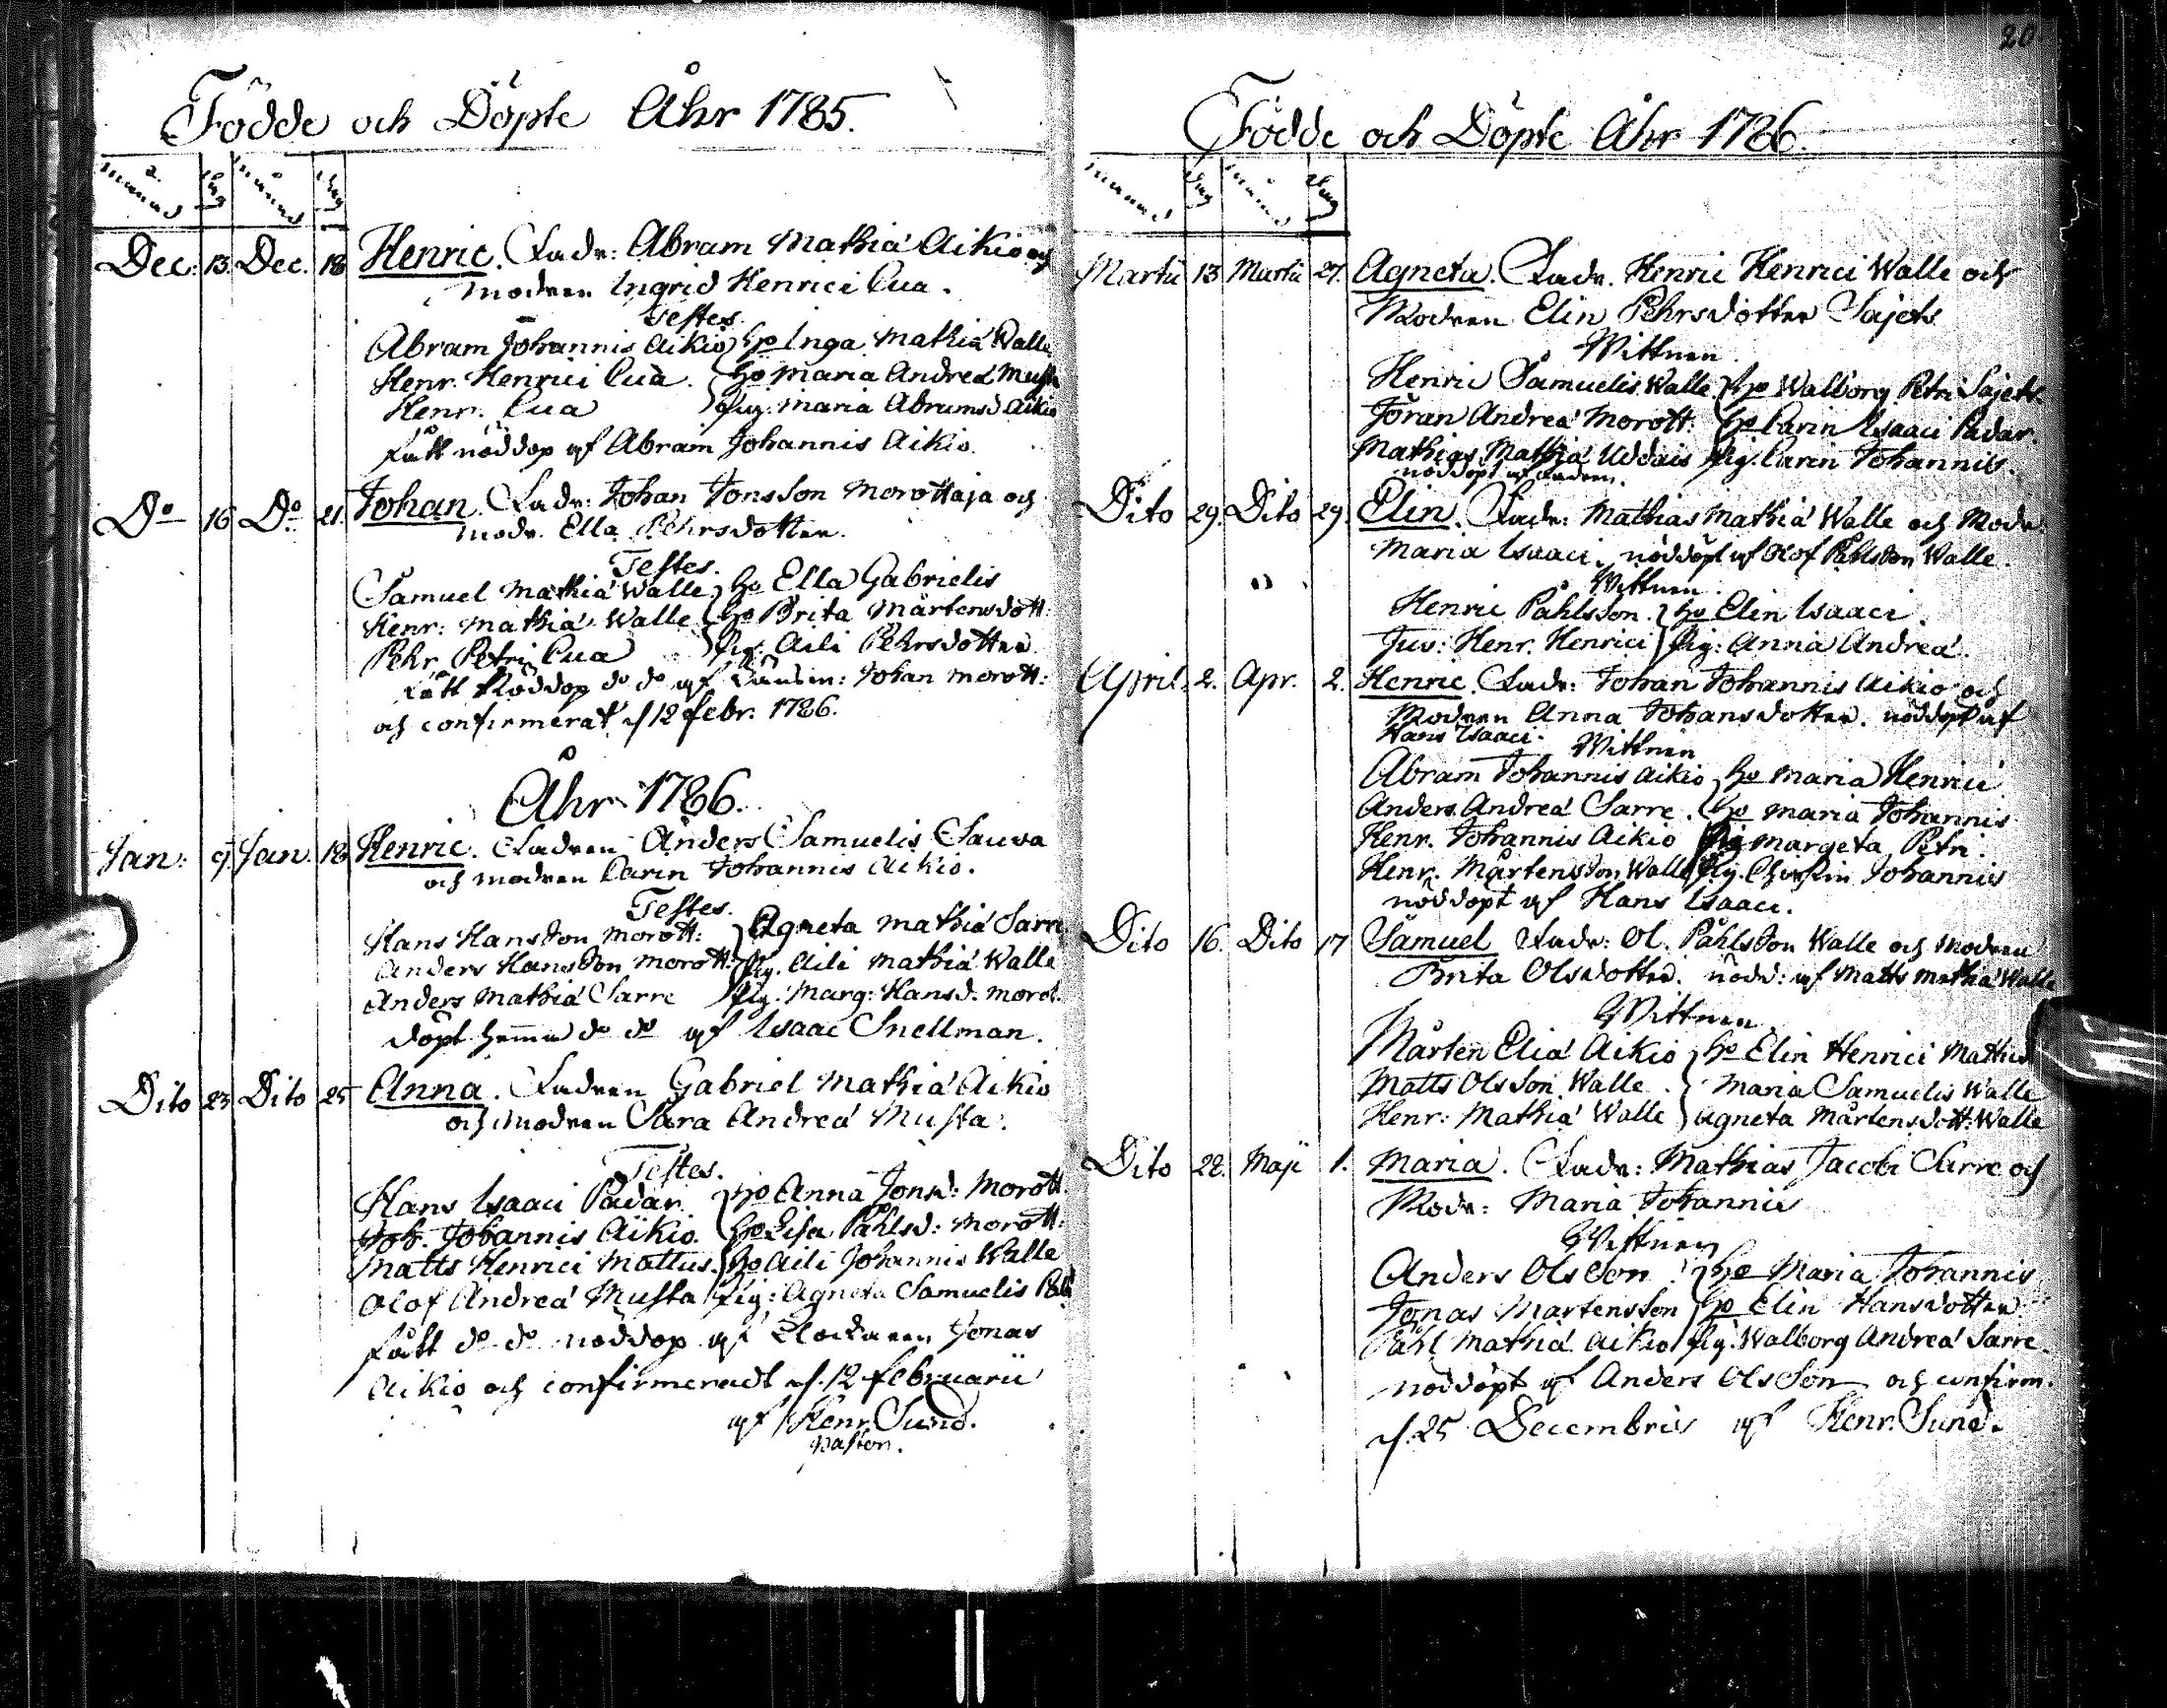 Födde och Döpte Åhr 1785.
månad dag månad dag
Dec: 13. Dec. 18 Henric. Fadr: Abram Mathiæ Aikio och
modren Ingrid Henrici Cua.
Testes.
Abram Johannis Aikio } ho Inga Mathiæ Walle
Henr. Henrici Cua. } ho Maria Andreæ Musta
Henr. Cua } pig. Maria Abramsd Aikio
fått nöddop af Abram Johannis Aikio.
Do 16 Do 21. Johan. Fadr: Johan Jonsson Morottaja och
modr. Ella Pehrsdotter.
Testes.
Samuel Mathiæ Walle } ho Ella Gabrielis
Henr: Mathiæ Walle } ho Brita Mårtensdott:
Pehr Petri Cua } pig. Aili Pehrsdotter
fått Nöddop do do af Johan Morott:
och confirmerat d 12 febr. 1786.
Åhr 1786.
Jan: 9. Jan. 18 Henric. Fadren Anders Samuelis Sauva
och modren Carin Johannis Aikio.
Testes.
Hans Hansson Morott: } Agneta Mathiæ Sarre
Anders Hansson Morott: } pig. Aili Mathiæ Walle
Anders Mathiæ Sarre } pig. Marg: Hansd. Morot.
döpt hemma do do af Isaac Snellman.
Dito 23 Dito 25 Anna. Fadren Gabriel Mathiæ Aikio
och modren Sara Andreæ Musta.
Testes.
Hans Isaaci Padar. } ho Anna Jonsd: Morott.
Joh. Johannis Aikio. } ho Lisa Påhlsd: Morott:
Matts Henrici Mattus. } ho Aili Johannis Walle
Olof Andreæ Musta } pig: Agneta Samuelis
fått do do nöddop af Klockaren Jonas
Aikio och confirmeradt d. 12 februarii
af Henr. Sund.
pastor.
20
Födde och Döpte Åhr 1786.
månad dag månad dag
Martii 13 Martii 27. Agneta. Fadr. Henric Henrici Walle och
Modren Elin Pehrsdotter Sajets
Wittnen
Henric Samuelis Walle } ho Walborg Petri Sajets.
Jöran Andreæ Morott. } ho Carin Isaaci Padar.
Mathias Mathiæ Uddais } pig. Carin Johannis.
nöddöpt af fadren.
Dito 29. Dito 29. Elin. Fadr: Mathias Mathiæ Walle och Modr.
Maria Isaaci. nöddöpt af Olof Påhlsson Walle.
Wittnen.
Henric Påhlsson. } ho Elin Isaaci.
Juv: Henr. Henrici } pig: Anna Andreæ.
April. 2. Apr. 2. Henric. Fadr: Johan Johannis Aikio och
Modren Anna Johansdotter. nöddöpt af
Hans Isaaci.
Wittnen
Abram Johannis Aikio } ho Maria Henrici
Anders Andreæ Sarre. } ho Maria Johannis
Henr. Johannis Aikio } pig Margeta Petri.
Henr. Mårtensson Walle } pig. Christin Johannis
nöddöpt af Hans Isaaci.
Dito 16. Dito 17 Samuel Fadr: Ol. Påhlsson Walle och Modren
Brita Olsdotter. nödd: af Matts Mathiæ Walle
Wittnen
Mårten Eliæ Aikio } ho Elin Henrici Mattus
Matts Olsson Walle. } Maria Samuelis Walle
Henr: Mathiæ Walle } Agneta Mårtensdott: Walle
Dito 22. Maji 1. Maria. Fadr: Mathias Jacobi Sarre och
Modr: Maria Johannis
Wittnen
Anders Olsson } ho Maria Johannis
Jonas Mårtensson } ho Elin Hansdotter
Påhl Mathiæ Aikio } pig. Walborg Andreæ Sarre.
nöddöpt af Anders Olsson och confirm.
d. 25 Decembris af Henr. Sund.